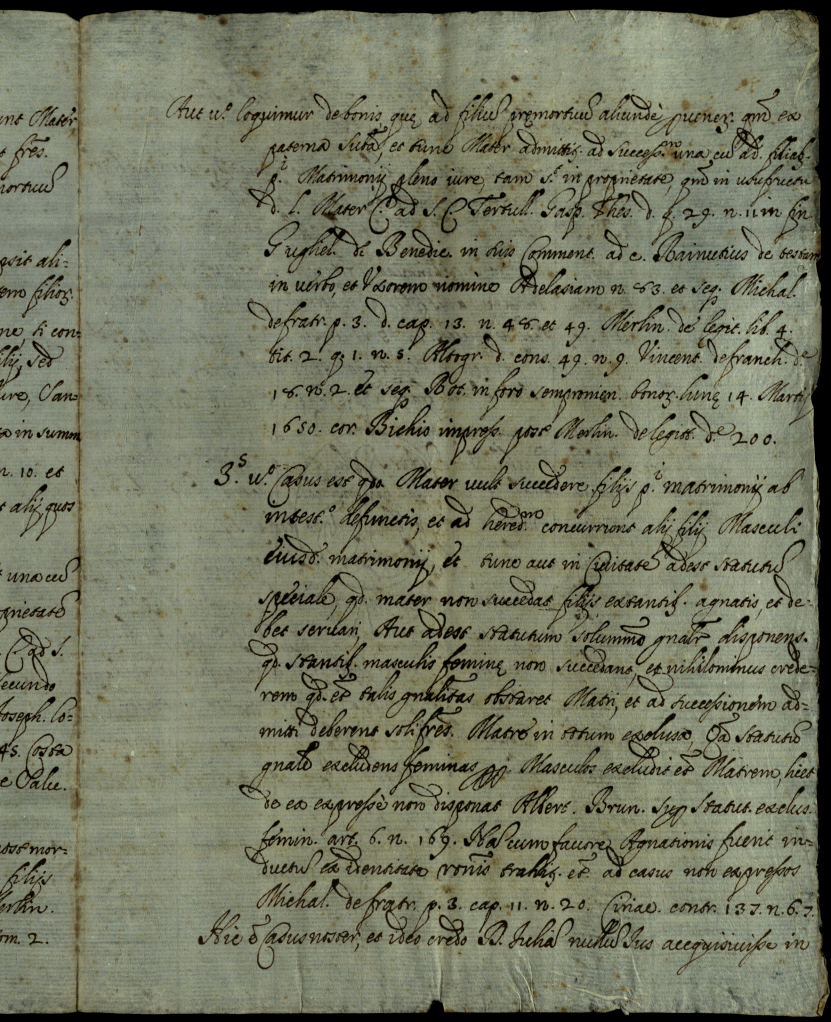 unt Mater
t fres.
mortuũ
ssit ali=
em filior.
ne, ti con=
lij, sed
ure, San=
ta in summ
n. 10. et
t alij quos
t una cũ
prietatẽ
C. ad S.
secundo
Joseph. Lo=
45. Costa
e Salu.
mor=
filijs
Merlin.
om 2.
Aut u.º loquimur de bonis, quę ad filiũ premortuũ aliundè puener. qm̃ ex
paterna Sutã, et tunc Mater admittit. ad Success.ne una cũ ad. filiab.
pˢ. Matrimonij pleno iure, tam s.t in proprietate, qm̃ in usufructu
d. l. Mater C. ad S. C. Tertull. Gasp. Thes. d. q. 29. n. 11 in fin
Gughel. de Benedic. in suis Comment. ad c. Rainutius de testam
in uerbo, et Vxorem nomine Adelasiam n. 83. et seq. Michal.
de fratr. p. 3. d. cap. 13. n. 48. et 49. Merlin. de legit. lib. 4.
tit. 2. q. 1. n. 5. Altogr. d. cons. 49. n. 9. Vincent. de franch. d.e
18. n. 2. et seq. Rot. in foro sempronien. bonor. lunę 14. Martij
1650. cor. Bichio impress. post Merlin. de legit. d.e 200.
3.s u.º Casus est qdo Mater uult succedere filijs pⁱ. matrimonij ab
intest.º defunctis, et ad hered.m concurriont alij filij Masculi
eiusd. matrimonij, et tunc aut in Ciuitate adest statutũ
speciale, qd. mater non succedat filijs extantib. agnatis, et de=
bet seruari, Aut adest statutum solummº gnalr disponens.
qd. stantib. masculis feminę non succedant et nihilominus crede=
rem qd. et talis gnalitas obstaret Matri, et ad successionem ad=
mitti deberent soli fres. Matre in totum exclusa, Qa statutũ
gnale excludens feminas pp. Masculos excludit et Matrem, licet
de ea expressè non disponat Albert. Brun. sup statut. exclus.
femin. art. 6. n. 169. Nã cum fauore Agnationis fuerit in=
ductũ ex identitate ronis trahit. et ad casus non expressos
Michal. de fratr. p. 3. cap. 11. n. 20. Ciriac. contr. 137. n. 67.
Hic ẽ Casus noster, et ideo credo D. Juliã nullũ Jus acquisiuisse in